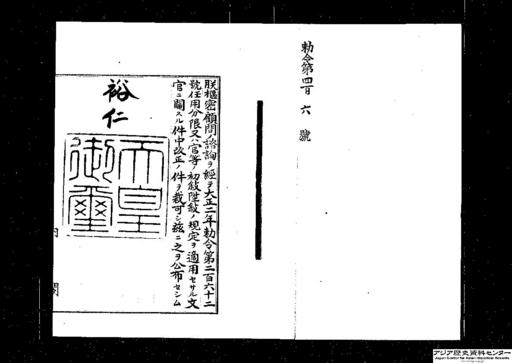 勅令第四百六號
朕樞密顧問ノ諮詢ヲ經テ大正二年勅令第二百六十二
號任用分限又ハ官等ノ初敍陞敍ノ規定ヲ適用セサル文
官ニ關スル件中改正ノ件ヲ裁可シ茲ニ之ヲ公布セシム
裕仁
天皇
御璽
内閣
アジア歴史資料センター
Japan Center for Asian Historical Records